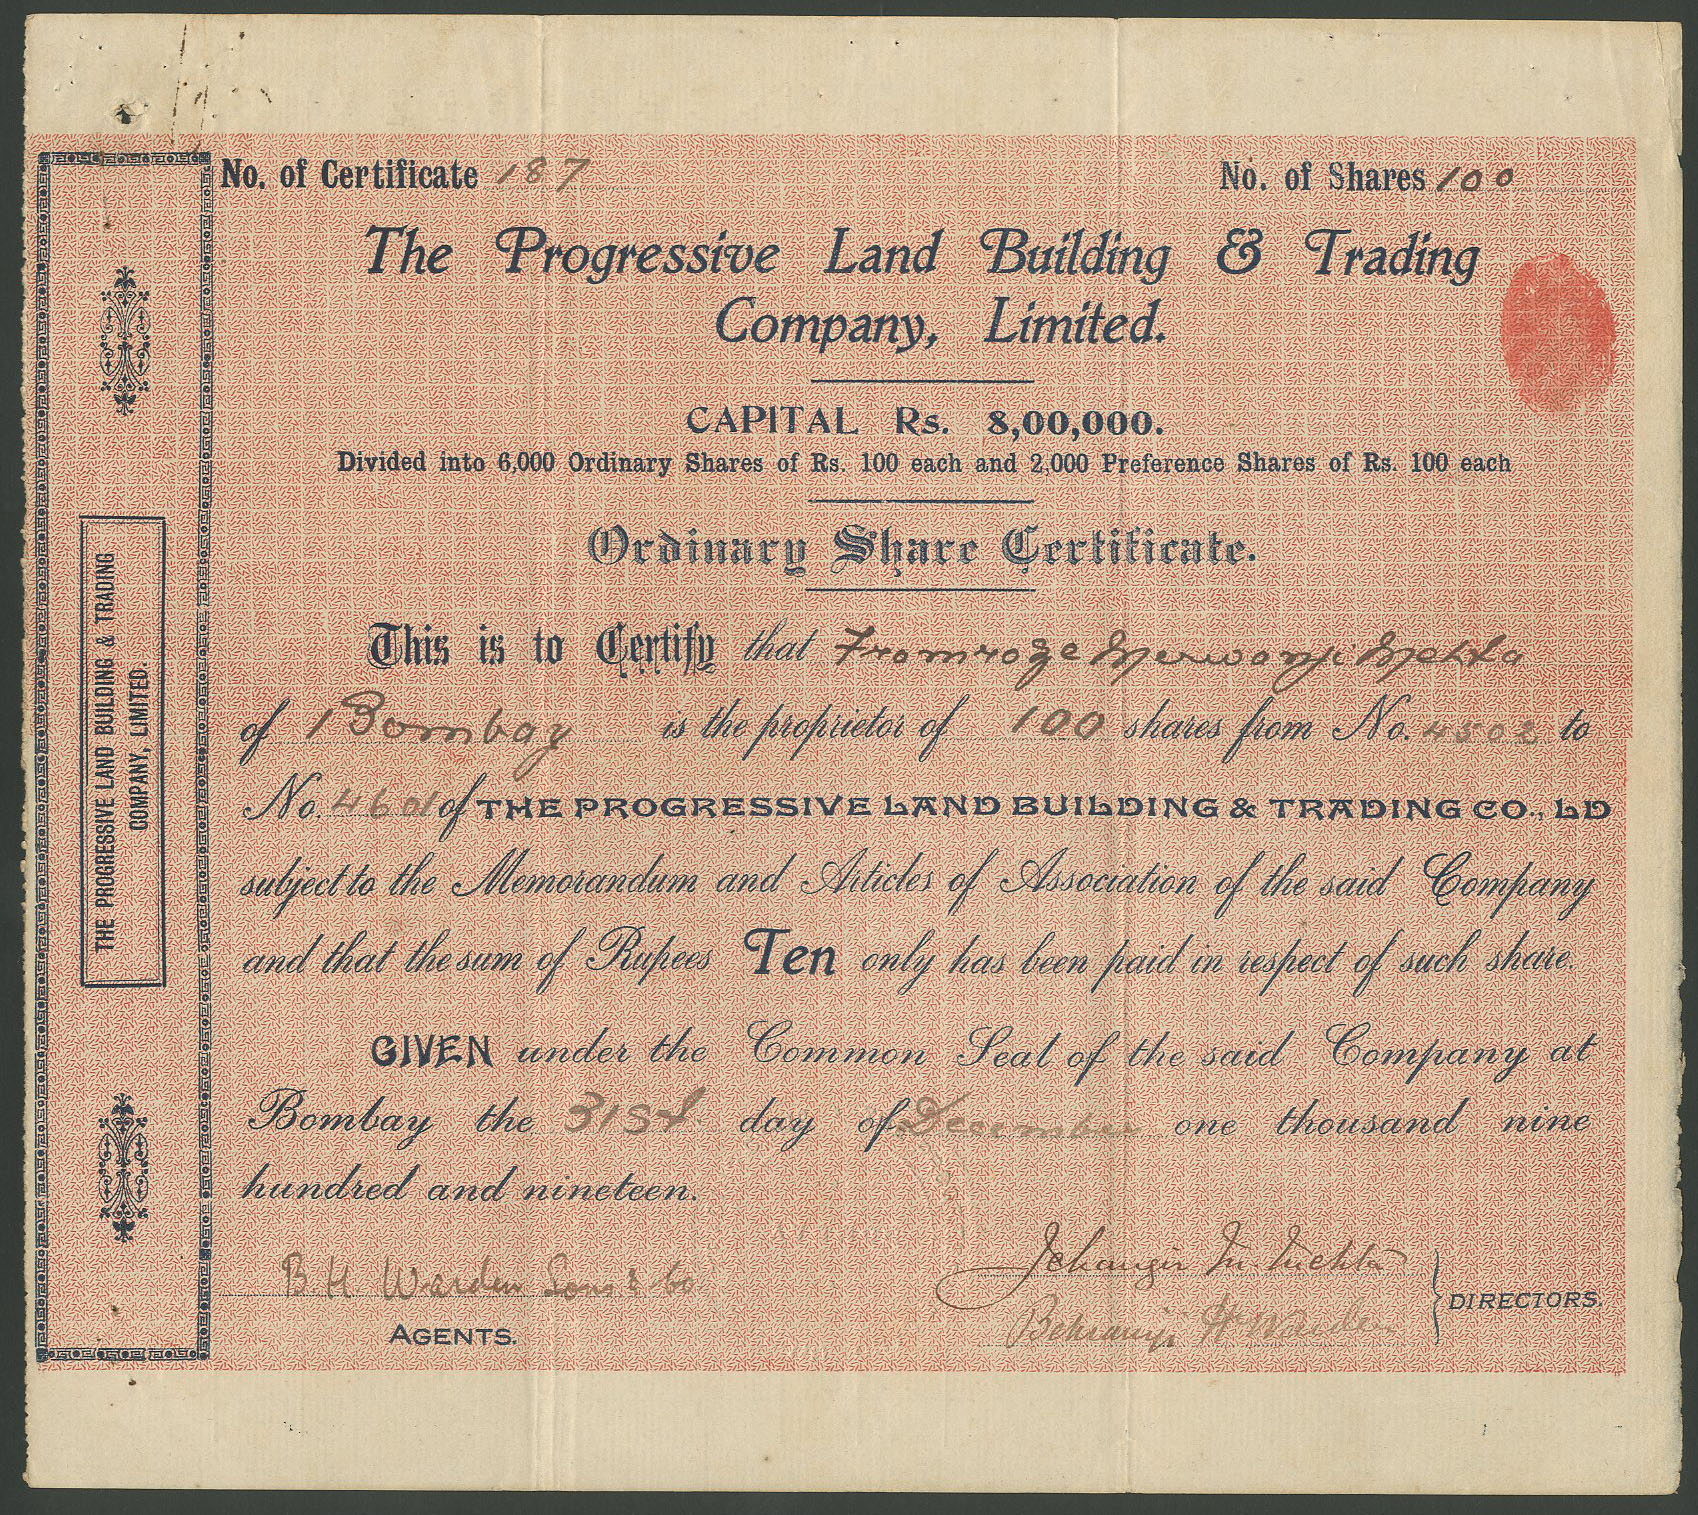 No. of Certificate 187
No. of Shares 100
The Progressive Land Building & Trading
Company, Limited.
CAPITAL Rs. 8,00,000.
Divided into 6,000 Ordinary Shares of Rs. 100 each and 2,000 Preference Shares of Rs. 100 each
Ordinary Share Certificate.
This is to Certify that Framroze Merwanji Mehta
of Bombay is the proprietor of 100 shares from No. 4502 to
No. 4601 of THE PROGRESSIVE LAND BUILDING & TRADING CO., LD
subject to the Memorandum and Articles of Association of the said Company
and that the sum of Rupees Ten only has been paid in respect of such share.
GIVEN under the Common Seal of the said Company at
Bombay the 31st day of December one thousand nine
hundred and nineteen.
B H Warden Sons & Co
AGENTS.
Jehangir M. Mehta
Behramji H Warden
DIRECTORS.
THE PROGRESSIVE LAND BUILDING & TRADING
COMPANY, LIMITED.